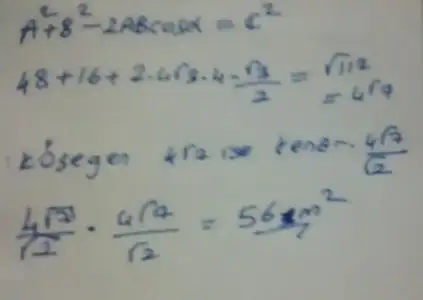 A²+B²-2ABcosα = C²
48+16+2·4√3·4·√3/2 = √112
= 4√7
köşegen 4√7 ise kenar 4√7/√2
4√7/√2 · 4√7/√2 = 56 m²